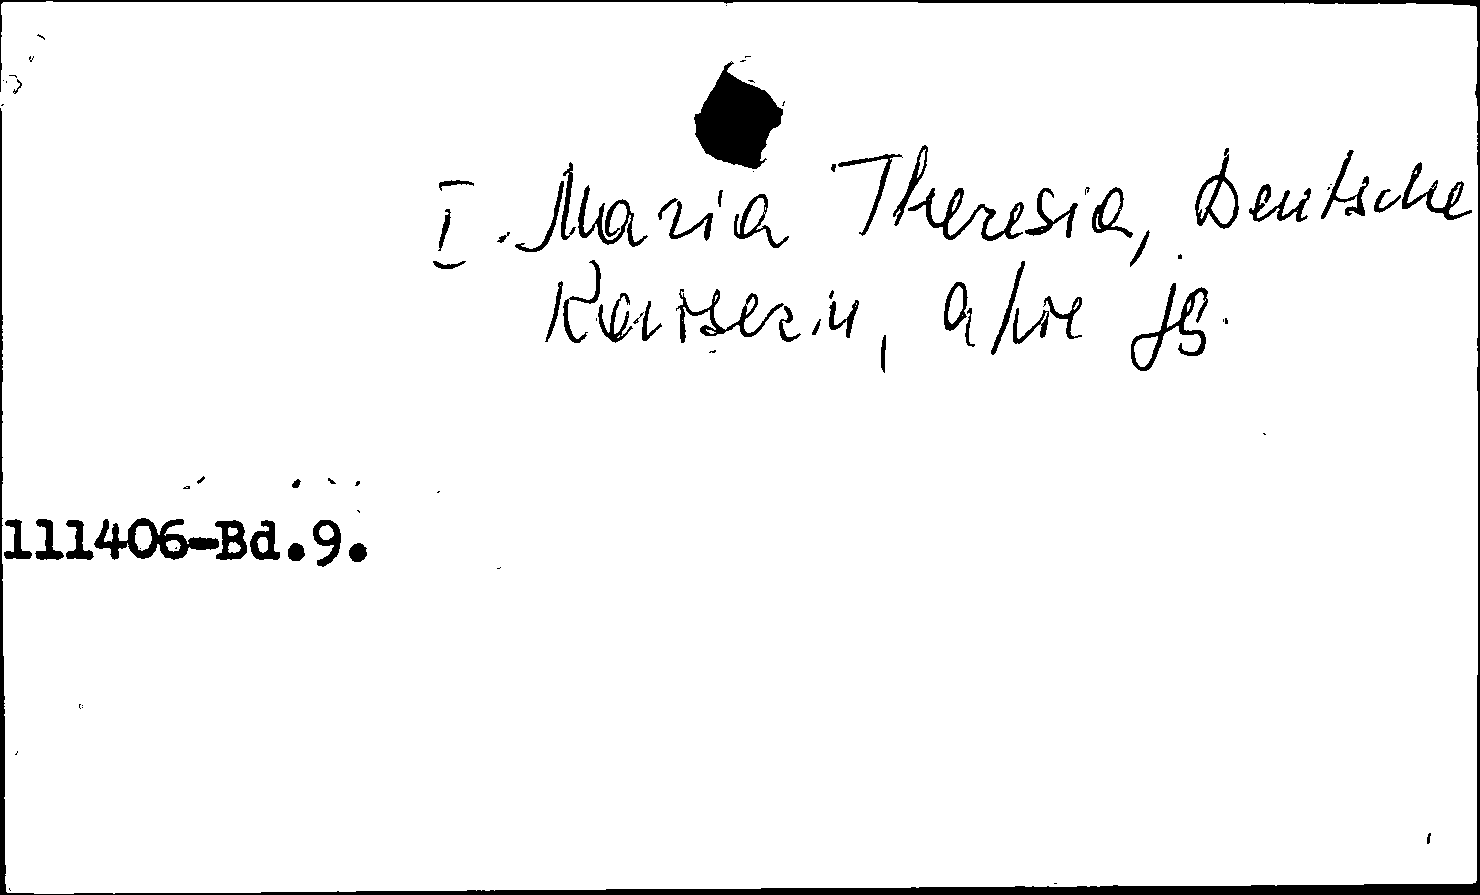 I. Maria Theresia, Deutsche
Kaiserin,
111406-Bd.9.